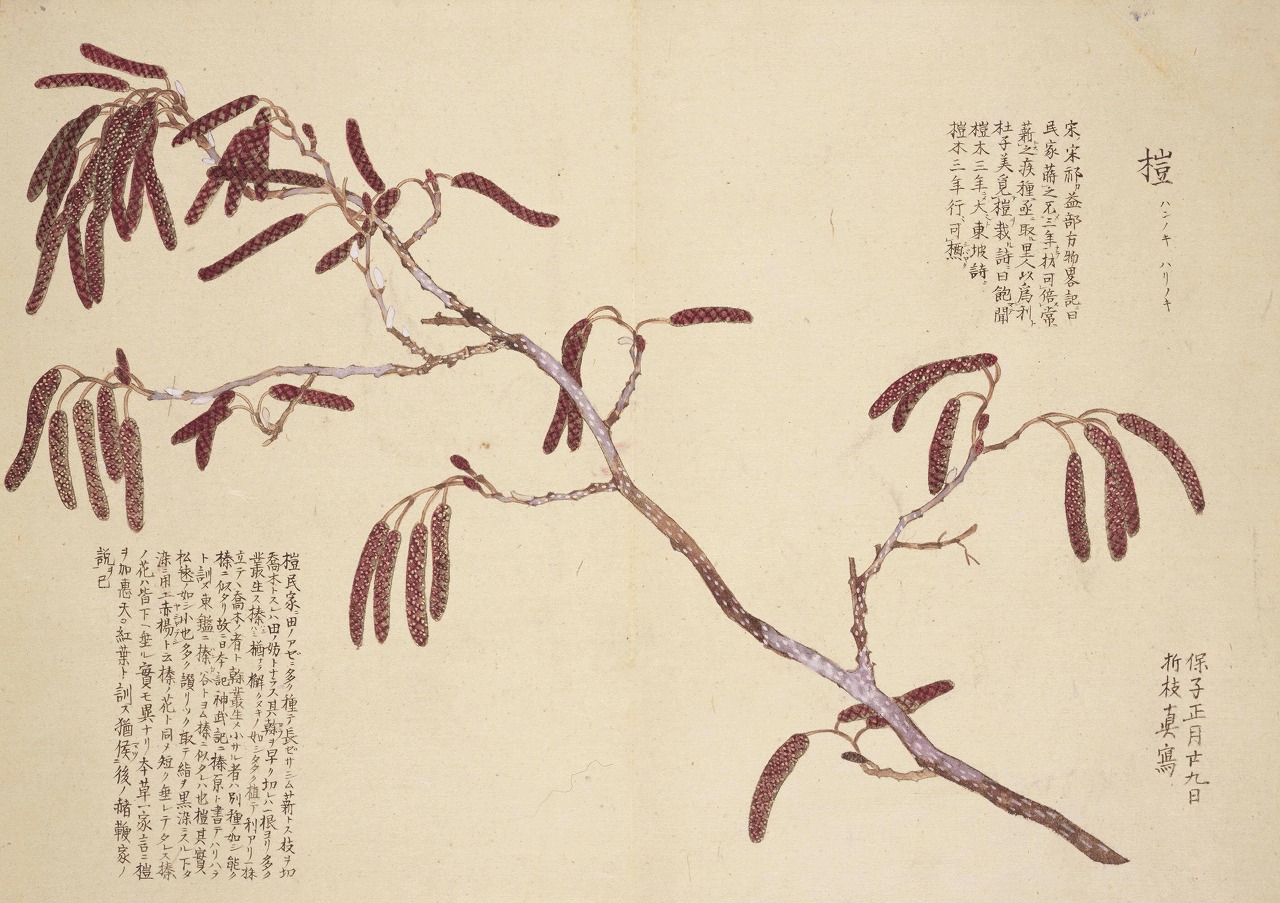 榿 ハンノキ ハリノキ
宋宋祁カ益部方物畧記曰
民家蒔之不三年材可倍常
薪之疾種亟取里人以為利
杜子美覓榿栽詩曰飽聞
榿木三年大東坡詩
榿木三年行可
保子正月廿九日
折枝真寫
榿民家ニ田ノアゼニ多ク種テ長ゼサシム薪トス枝ヲ切
喬木トスレハ田ノ妨トナラス其幹ヲ早ク切レハ一根ヨリ多ク
叢生ス榛ハ猶ヲ檞クヌキノ如シ多ク植テ利アリ一株
立テハ喬木ノ者ト幹叢生メ小サル者ハ別種ノ如シ能ク
榛ニ似タリ故ニ日本記神武記ニ榛原ト書テハリハラ
ト訓メ東鑑ニ榛谷トヨム榛ニ似タレハ也榿其實ハ
松毬ノ如シ小也多ク鑚リツク取テ絹ヲ黒染ニスル下タ
染ニ用エ赤楊ト云榛ノ花ト同メ短ク垂レテタレス榛
ノ花ハ皆下ヘ垂ル實モ異ナリ本草一家言ニ榿
ヲ加恵天ノ紅葉ト訓ス猶俟後ノ赭鞭家ノ
説ヲ已